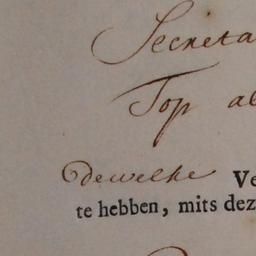 Secreta
Top al
dewelke Ve
te hebben, mits dez